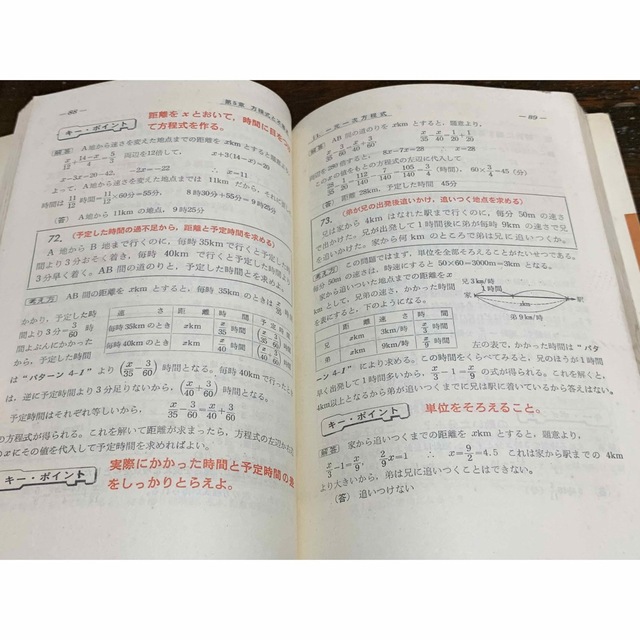 — 88 —
第5章 方程式と
キー・ポイント
距離を x とおいて,時間に目をつけ
て方程式を作る。
解答 A地から速さを変えた地点までの距離を xkm とすると題意より
x/12+(14-x)/4=5/3 両辺を12倍して, x+3(14-x)=20
x-3x=20-42, -2x=-22 ∴ x=11
よって,A地から速さを変えた地点までは 11km だから,それに要
時間は 11/12時間=11/12×60分=55分, 8時30分+55分=9時25分
(答) A地から 11km の地点,9時25分
72. (予定した時間の過不足から,距離と予定時間を求める)
A 地から B 地まで行くのに,毎時 35km で行くと予定した時
間より3分おそく着き,毎時 40km で行くと予定した時間より
3分早く着く。AB 間の道のりと,予定した時間とを求めよ。
考え方 AB 間の距離を xkm とすると,毎時 35km のときは x/35 時間
かかり,予定した時
間より3分 3/60 時
間よぶんにかかった
から,予定した時間
速さ 距離 時間 予定時間
毎時35kmのとき xkm x/35時間 (x/35-3/60)時間
毎時40kmのとき xkm x/40時間 (x/40+3/60)時間
は “パターン 4-I” より (x/35-3/60) 時間となる。毎時40kmで行ったとき
は,逆に予定時間より3分足りないから,(x/40+3/60) 時間となる。
予定時間はそれぞれ等しいから, x/35-3/60=x/40+3/60
の方程式が得られる。これを解いて距離が求まったら,方程式の左辺か
のxにその値を代入して予定時間を求めればよい。
キー・ポイント
実際にかかった時間と予定時間の差
をしっかりとらえよ。
11. 一元一次方程式
— 89 —
解答 AB 間の道のりを xkm とすると,題意より,
x/35-3/60=x/40+3/60, x/35-x/40=1/20+1/20
両辺を280倍すると, 8x-7x=28 ∴ x=28
このxの値をもとの方程式の左辺に代入して
28/35-1/20=112/140-7/140=105/140=3/4(時間), 60×3/4=45(分)
(答) 距離 28km,予定した時間 45分
73. (弟が兄の出発後追いかけ,追いつく地点を求める)
兄は家から 4km はなれた駅まで行くのに,毎分 50m の速さ
で出かけた。兄が出発して1時間後に弟が毎時 9km の速さで兄
を追いかけた。家から何 km のところで弟は兄に追いつくか。
考え方 この問題ではまず,単位を全部そろえることがたいせつである。
毎分 50m の速さは,時速にすると 50×60=3000m=3km となる。
家から追いついた地点までの距離を x
km として,兄弟の速さ,かかった時間
を表にすると,下のようになる。
兄3km/時
家
駅
弟9km/時
速さ 距離 時間
兄 xkm 3km/時 x/3時間
弟 xkm 9km/時 x/9時間
左の表で,かかった時間は“パタ
ーン 4-I”により求める。この時間をくらべてみると,兄のほうが1時間
早く出発して1時間多いから,x/3-1=x/9 の式が得られる。これを解くと,
4km以上となるから弟が追いつくまでに兄は駅に着いているから答えはない。
キー・ポイント
単位をそろえること。
解答 家から追いつくまでの距離を xkm とすると,題意より,
x/3-1=x/9, 2/9x=1 ∴ x=9/2=4.5 これは家から駅までの 4km
より大きいから,弟は兄に追いつくことはできない。
(答) 追いつけない